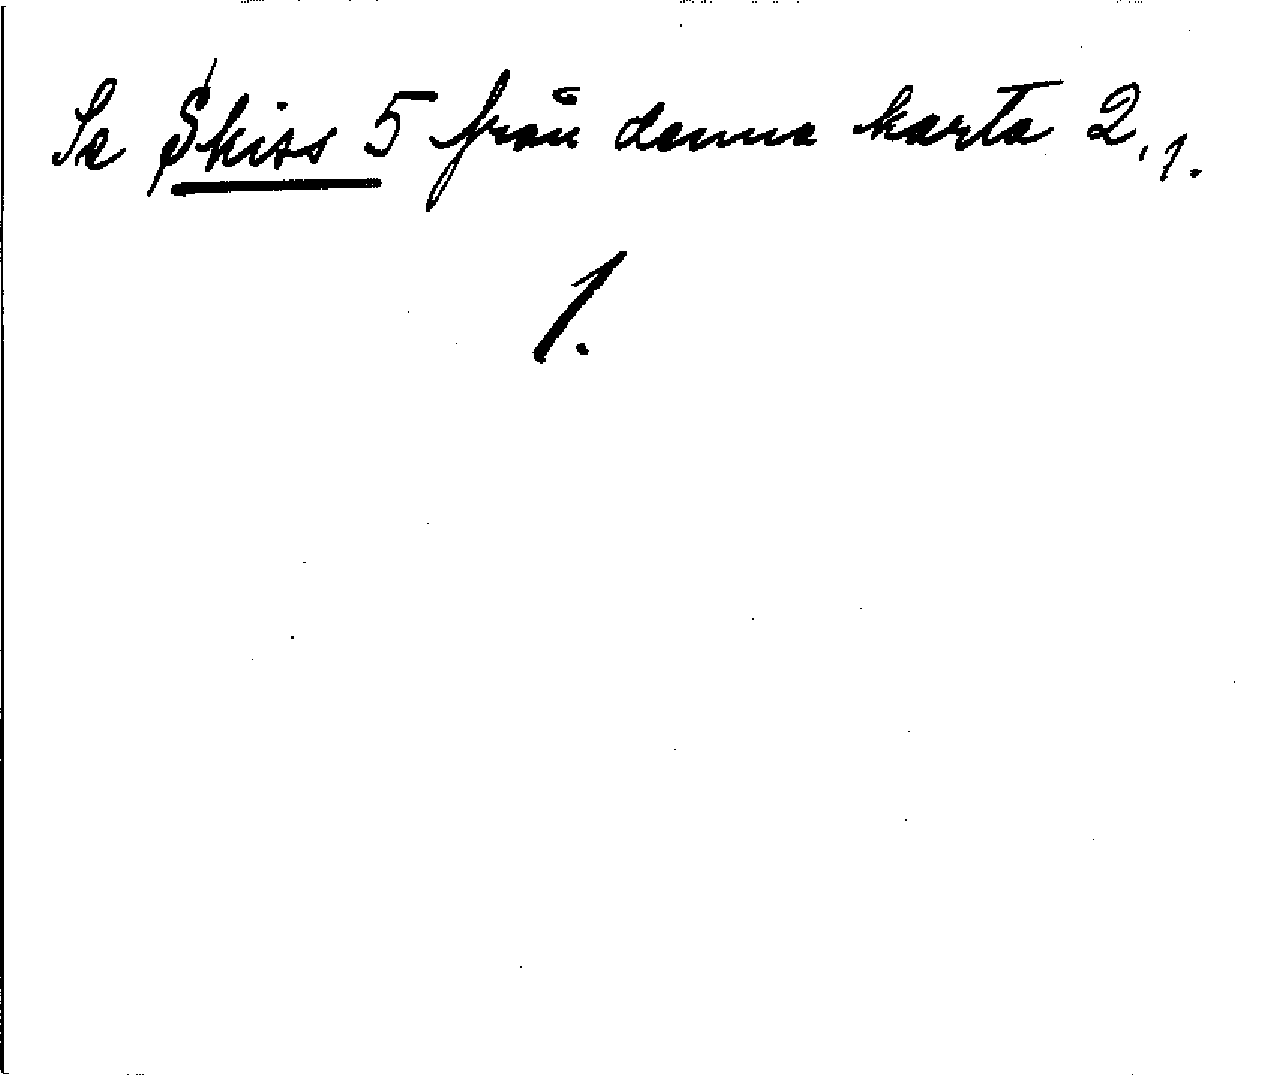 Se Skiss 5 från denna karta 2,1.
1.